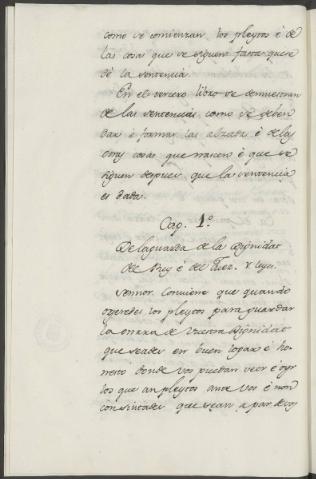 como se comienzan los pleytos é de
las cosas que se siguen fasta que se
dé la sentencia.
En el tercero libro se demuestran
de las sentencias como se deben
dar é formar las alzadas é de las
otras cosas que nascen é que se
siguen despues que la sentencia
es dada.
Cap. 1.º
De la guarda de la Dignidat
del Rey é del Juez.
Sennor conviene que quando
oyeredes los pleytos para guardar
la onrra de vuestra Dignidat
que seades en buen logar é ho-
nesto donde vos puedan veer é oyr
los que an pleytos ante vos é non
consintades que sean a par de vos